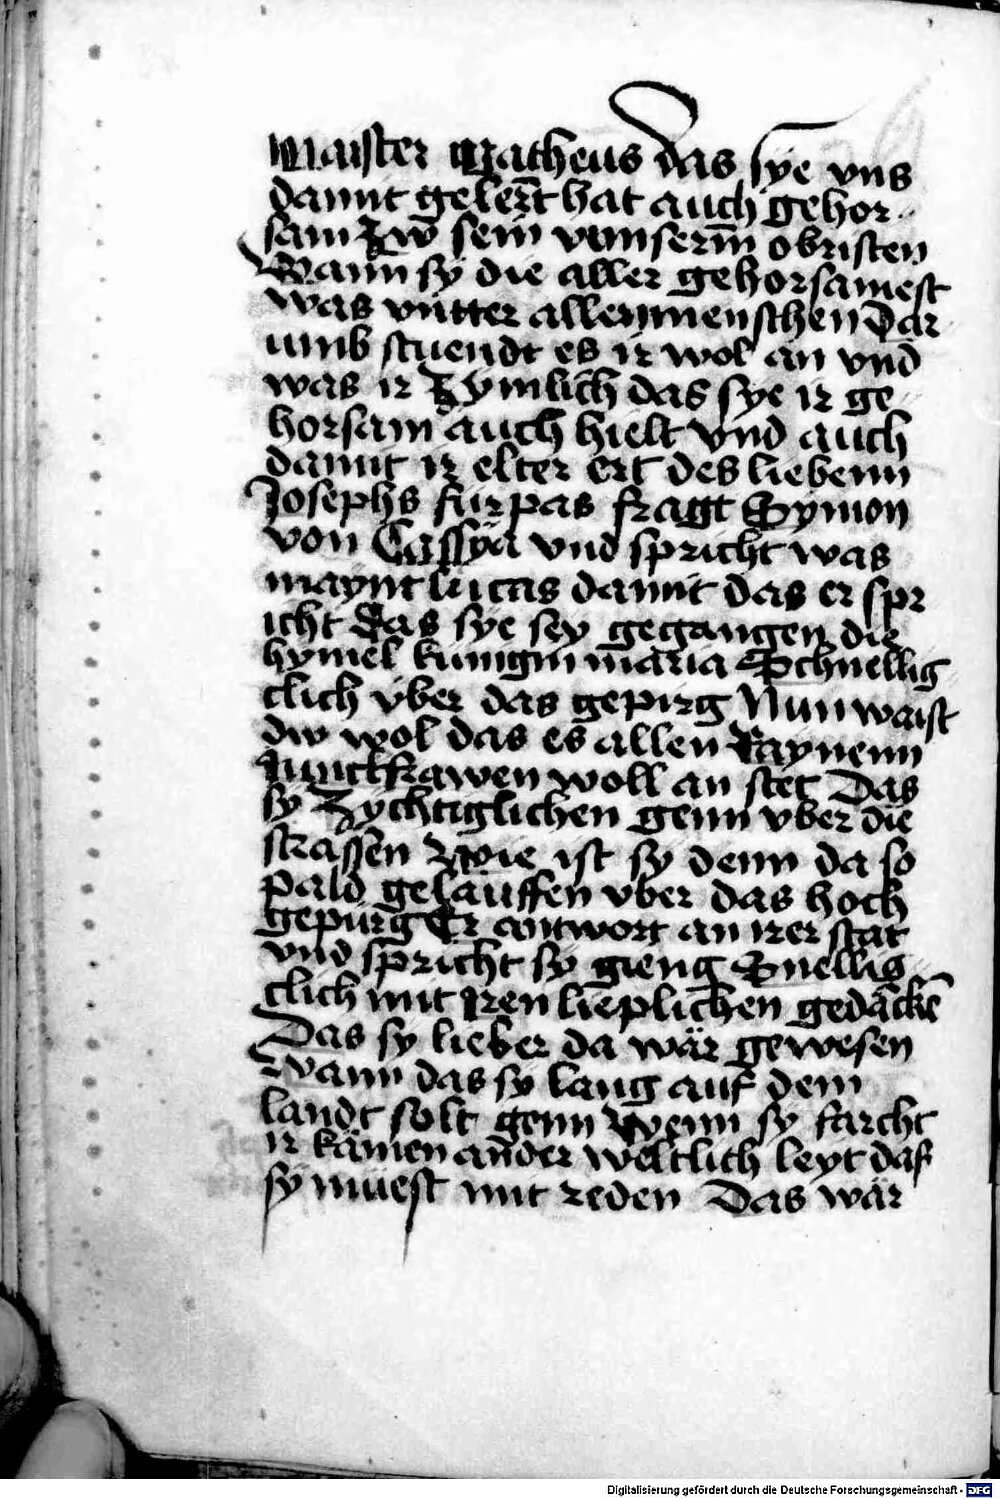 Maister Matheus das sye vns
damit gelernt hat auch gehor-
sam Zw sein vnnserm obristen
Wann sy die aller gehorsamest
was vntter allenmenschen Dar
umb stuendt es ir wol an vnd
was ir Zymlich das sye ir ge-
horsam auch hielt vnd auch
damit ir elter ert des liebenn
Josephs furpas fragt Symon
von Cassya vnd spricht was
maynt lucas damit das er spr
icht Das sye sey gegangen die
hymel kunigin maria Schnellig
clich vber das gepirg Nun waist
dw wol das es allen Raynenn
Junckfrawen woll an stet Das
sy Zychtiglichen genn vber die
strassen Zwie ist sy denn da so
pald gelauffen vber das hoch
gepürg Er antwort an irer stat
vnd spricht sy gieng Snellig
clich mit Iren lieplichen gedäcken
Das sy lieber da wär gewesen
Wann das sy lang auf dem
landt solt genn Wenn sy farcht
ir kämen ander weltlich leyt das
sy müest mit reden Das wär
Digitalisierung gefördert durch die Deutsche Forschungsgemeinschaft - DFG